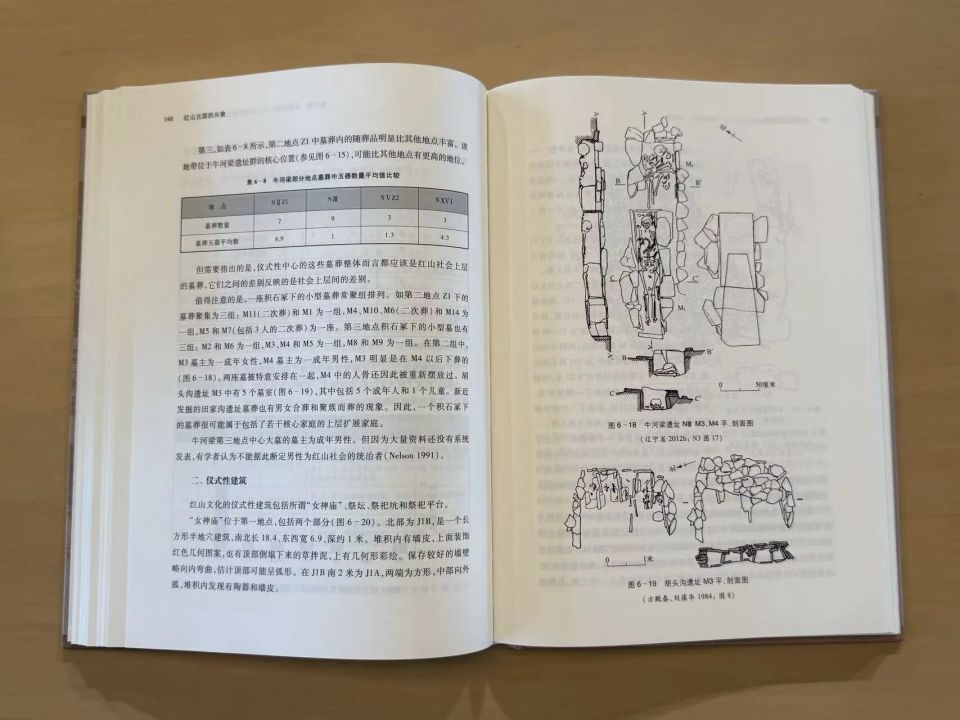 148 红山古国的兴衰
第三,如表6-8所示,第二地点Z1中墓葬内的随葬品明显比其他地点丰富。该
地带位于牛河梁遗址群的核心位置(参见图6-15),可能比其他地点有更高的地位。
表6-8 牛河梁部分地点墓葬中玉器数量平均值比较
地 点 NⅡZ1 NⅢ NVZ2 NXVI
墓葬数量 7 9 3 3
墓葬玉器平均数 6.9 1 1.3 4.3
但需要指出的是,仪式性中心的这些墓葬整体而言都应该是红山社会上层
的墓葬,它们之间的差别反映的是社会上层间的差别。
值得注意的是,一座积石冢下的小型墓葬常聚组排列。如第二地点Z1下的
墓葬聚集为三组:M11(二次葬)和M1为一组,M4、M10、M6(二次葬)和M14为
一组,M5和M7(包括3人的二次葬)为一座。第三地点积石冢下的小型墓也有
三组:M2和M6为一组,M3、M4和M5为一组,M8和M9为一组。在第二组中,
M3墓主为一成年女性,M4墓主为一成年男性,M3明显是在M4以后下葬的
(图6-18)。两座墓被特意安排在一起,M4中的人骨还因此被重新摆放过。胡
头沟遗址M3中有5个墓室(图6-19),其中包括5个成年人和1个儿童。新近
发掘的田家沟遗址墓葬也有男女合葬和聚族而葬的现象。因此,一个积石冢下
的墓葬很可能属于包括了若干核心家庭的上层扩展家庭。
牛河梁第三地点中心大墓的墓主为成年男性。但因为大量资料还没有系统
发表,有学者认为不能据此断定男性为红山社会的统治者(Nelson 1991)。
二、仪式性建筑
红山文化的仪式性建筑包括所谓“女神庙”、祭坛、祭祀坑和祭祀平台。
“女神庙”位于第一地点,包括两个部分(图6-20)。北部为J1B,是一个长
方形半地穴建筑,南北长18.4、东西宽6.9、深约1米。堆积内有墙皮,上面装饰
红色几何图案,也有顶部倒塌下来的草拌泥,上有几何形彩绘。保存较好的墙壁
略向内弯曲,估计顶部可能呈弧形。在J1B南2米为J1A,两端为方形,中部向外
弧,堆积内发现有陶器和墙皮。
A
北
M₄
B B′
C C′
M₃
A′
B B′
C C′
0 50厘米
图6-18 牛河梁遗址NⅢ M3、M4平、剖面图
(辽宁省2012b: N3图17)
北
0 1米
图6-19 胡头沟遗址M3平、剖面图
(方殿春、刘葆华1984: 图8)